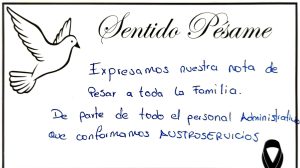 Sentido Pésame
Expresamos nuestra nota de
Pesar a toda la Familia.
De parte de todo el personal Administrativo
que conformamos AUSTROSERVICIOS